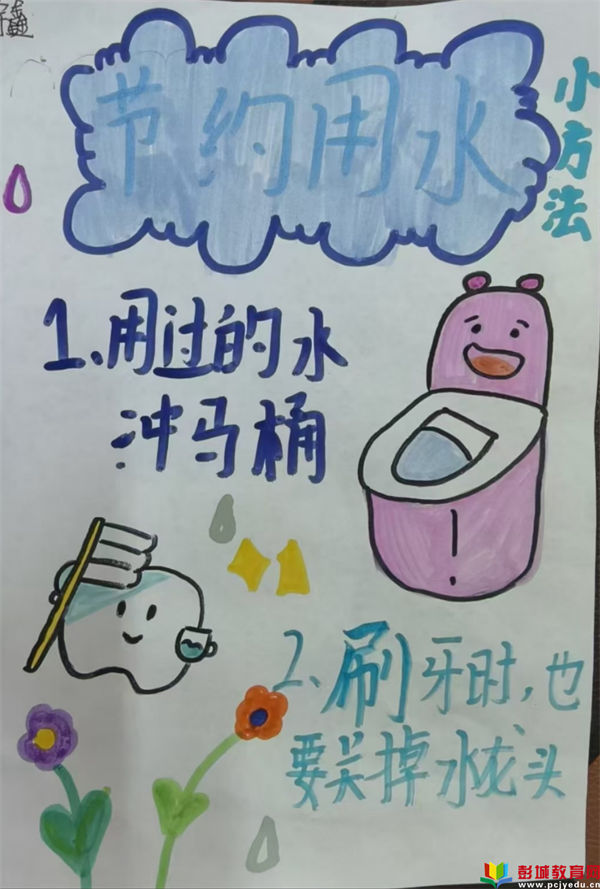 节约用水
小方法
1、用过的水
冲马桶
2、刷牙时,也
要关掉水龙头
彭城教育网
www.pcjyedu.cn